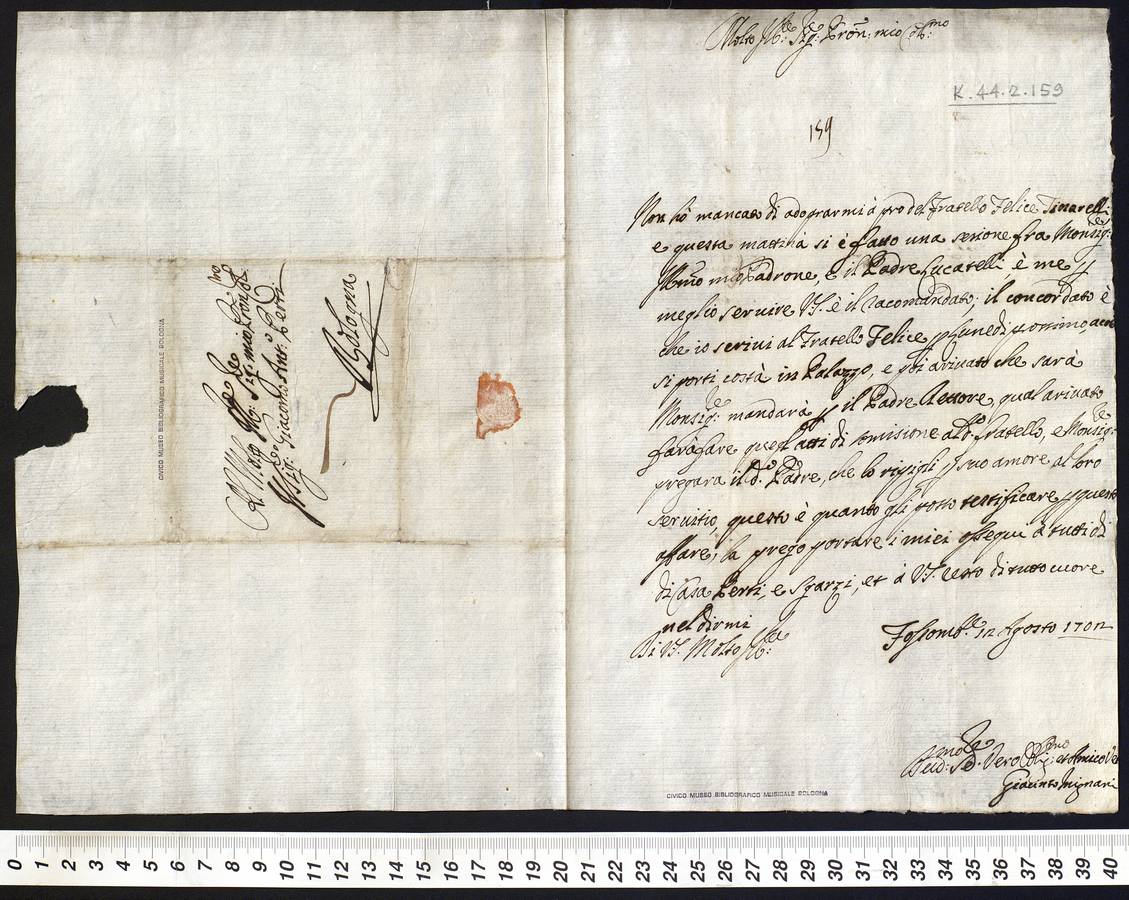 Molto Ill:re Sig:re Pron: mio Col:mo
K.44.2.159
159
Non hò mancato di adoprarmi à pro del Fratello Felice Tinarelli
e questa mattina si è fatto una sesione fra Monsig:re
Ill:mo mio Padrone, e il Padre Lucatelli è me p
meglio servire V.S. è il racomandato; il concordato è
che io scrivi al Fratello Felice p lunedi prossimo
si porti costà in Palazzo, e poi arivato che sarà
Monsig:re mandarà p il Padre Retore, qual arivato
farà fare quegl'atti di somisione al d:o fratello, e Monsig:re
pregara il d:o Padre, che lo ripigli p suo amore al loro
servitio, questo è quanto gli posso testificare p questo
affare; la prego portare i miei ossequi à tutti di
di Casa Perti, e Sgarzi, et à V.S. resto di tutto cuore
nel dirmi
Di V.S. Molto Ill:re
Fossomb:e 12 Agosto 1702
Dev:mo Se:re Vero Obl:mo et Amico
Giacinto Mignani
CIVICO MUSEO BIBLIOGRAFICO MUSICALE BOLOGNA
Al Molto Ill:re Sig:re mio Pron Col:mo
Il Sig:re Giacomo Ant:o Perti
Bologna
CIVICO MUSEO BIBLIOGRAFICO MUSICALE BOLOGNA
0 1 2 3 4 5 6 7 8 9 10 11 12 13 14 15 16 17 18 19 20 21 22 23 24 25 26 27 28 29 30 31 32 33 34 35 36 37 38 39 40